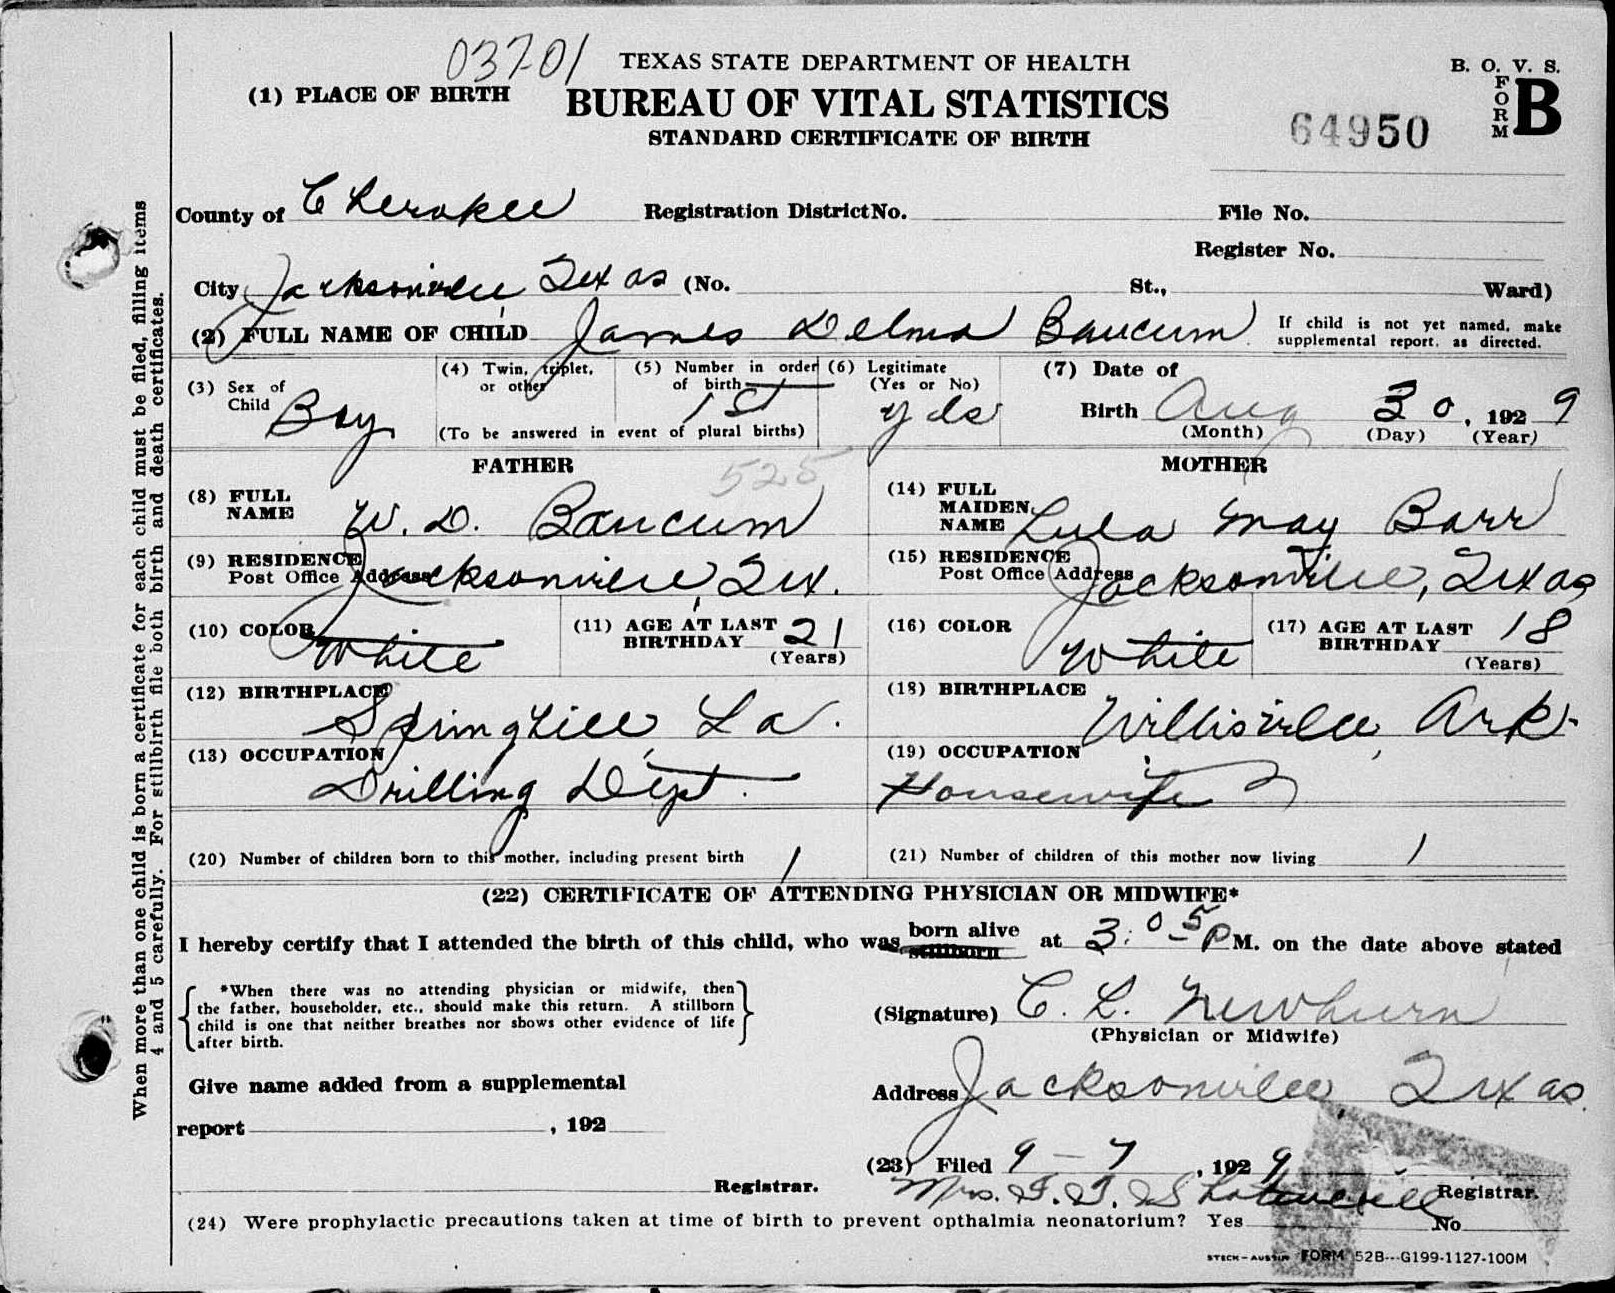 03701
TEXAS STATE DEPARTMENT OF HEALTH
B. O. V. S.
FORM B
(1) PLACE OF BIRTH
BUREAU OF VITAL STATISTICS
STANDARD CERTIFICATE OF BIRTH
64950
County of Cherokee Registration District No. File No.
Register No.
City Jacksonville Texas (No. St., Ward)
(2) FULL NAME OF CHILD James Delma Baucum If child is not yet named, make
supplemental report, as directed.
(3) Sex of
Child Boy
(4) Twin, triplet,
or other
(5) Number in order
of birth 1st
(To be answered in event of plural births)
(6) Legitimate
(Yes or No)
yes
(7) Date of
Birth Aug 30, 1929
(Month) (Day) (Year)
FATHER
525
(8) FULL
NAME W. D. Baucum
(9) RESIDENCE
Post Office Address Jacksonville, Tex.
(10) COLOR White
(11) AGE AT LAST
BIRTHDAY 21
(Years)
(12) BIRTHPLACE
Springhill, La.
(13) OCCUPATION
Drilling Dept.
MOTHER
(14) FULL
MAIDEN
NAME Lula May Barr
(15) RESIDENCE
Post Office Address Jacksonville, Texas
(16) COLOR
White
(17) AGE AT LAST
BIRTHDAY 18
(Years)
(18) BIRTHPLACE
Willisville, Ark.
(19) OCCUPATION
Housewife
(20) Number of children born to this mother, including present birth 1
(21) Number of children of this mother now living 1
(22) CERTIFICATE OF ATTENDING PHYSICIAN OR MIDWIFE*
I hereby certify that I attended the birth of this child, who was born alive stillborn at 3:05 P M. on the date above stated
*When there was no attending physician or midwife, then
the father, householder, etc., should make this return. A stillborn
child is one that neither breathes nor shows other evidence of life
after birth.
(Signature) C. L. Newburn
(Physician or Midwife)
Give name added from a supplemental
report , 192
Registrar.
Address Jacksonville, Texas.
(23) Filed 9 - 7, 1929
Mrs. Registrar.
(24) Were prophylactic precautions taken at time of birth to prevent opthalmia neonatorium? Yes No
STECK-AUSTIN FORM 52B---G199-1127-100M
When more than one child is born a certificate for each child must be filed, filling items
4 and 5 carefully. For stillbirth file both birth and death certificates.